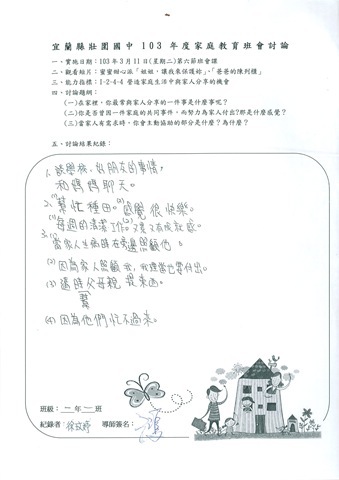 宜蘭縣壯圍國中 103 年度家庭教育班會討論
一、實施日期：103 年 3 月 11 日(星期二)第六節班會課
二、觀看短片：蜜蜜甜心派「姐姐，讓我來保護妳」、「爸爸的陳列櫃」
三、能力指標：1-2-4-4 營造家庭生活中與家人分享的機會
四、討論題綱：
(一)在家裡，你最常與家人分享的一件事是什麼呢？
(二)你是否曾因一件家庭的共同事件，而努力為家人付出?那是什感覺？
(三)當家人有需求時，你會主動協助的部分是什麼？為什麼？
五、討論結果紀錄：
1. 談學校、的朋友的事情，
和媽媽聊天。
2. (1)幫忙種田。(2)感覺很快樂。
(1)每週的清潔工作。(2)又
3. (1)當家人生病時在旁邊照顧他。
(2)因為家人照顧我，我理當也要付出。
(3)適時父母親幫
(4)因為他們忙不過來。
班級：二年一班
紀錄者：徐
導師簽名：